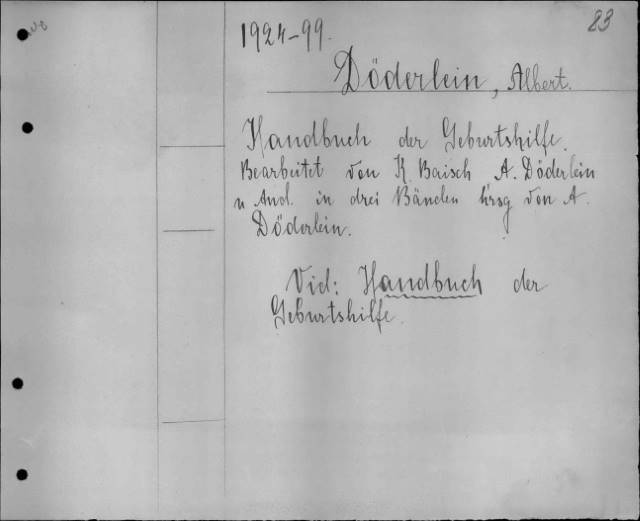 83
1924-99.
Döderlein, Albert.
Handbuch der Geburtshilfe.
Bearbeitet von K. Baisch A. Döderlein
u And. in drei Bänden hrsg von A.
Döderlein.
Vid: Handbuch der
Geburtshilfe.